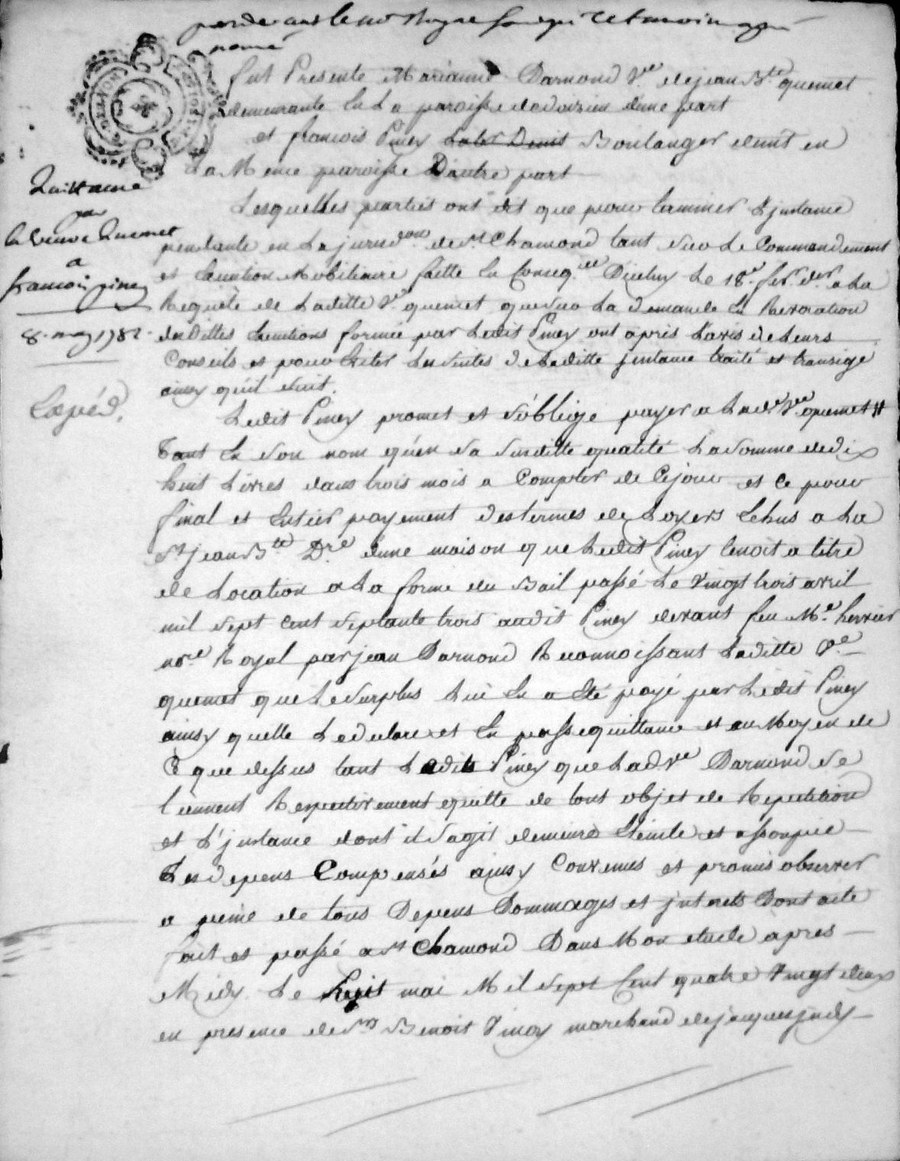 pardevant le nore Royal soussigné et temoins après
només
fut Presente Marianne Darnond Vve de jean Bte quemet
demeurante En La paroisse de doizieu dune part
et francois Piney Boulanger demt en
La Meme paroisse Dautre part
Lesquelles parties ont dit que pour terminer L'jnstance
pendante en La jurisdon de St Chamond tant sur Le Commandement
et Execution Mobiliaire faitte En Conseqce Dicelux Le 18e fevr. der a La
Requête de Laditte Vve quemet que sur La demande En Revocation
desdittes Executions formée par Ledit Piney ont après L'avis de Leurs
Conseils et pour Eviter Les suites de Laditte jnstance traité et transigé
ainsy quil suit.
Ledit Piney promet et s'oblige payer a Lade Vve quemet #
Tant En son nom qu'en sa susditte qualité La somme de dix
huit Livres dans trois mois a Compter de Cejour et ce pour
final et Entier payement des termes de Loyers Echus a La
St jean Bte Dre dune maison que Ledit Piney tenoit a titre
de Location a La forme du Bail passé Le Vingt trois avril
mil sept cent septante trois audit Piney devant feu Me. hervier
nore Royal par jean Darnond Reconnoissant Laditte Vve
quemet que Le surplus Lui En a Eté payé par Ledit Piney
ainsy quelle Le declare et En passe quittance et au Moyen de
Ce que dessus tant Ledit Piney que Lade Vve Darnond se
tiennent Respectivement quitte de tout objet de Repetition
et L'jnstance dont il s'agit demeure Eteinte et assoupie
Les depens Compensés ainsy Convenus et promis observer
a peine de tous Depens Dommages et jnterets Dont acte
fait et passé a St Chamond Dans Mon etude après
Midy Le huit mai Mil sept Cent quatre Vingt deux
en presence de Srs Benoit Piney marchand de
Quittance
par
la Veuve Quemet
a
francois piney
8. may 1782.
Expéd.